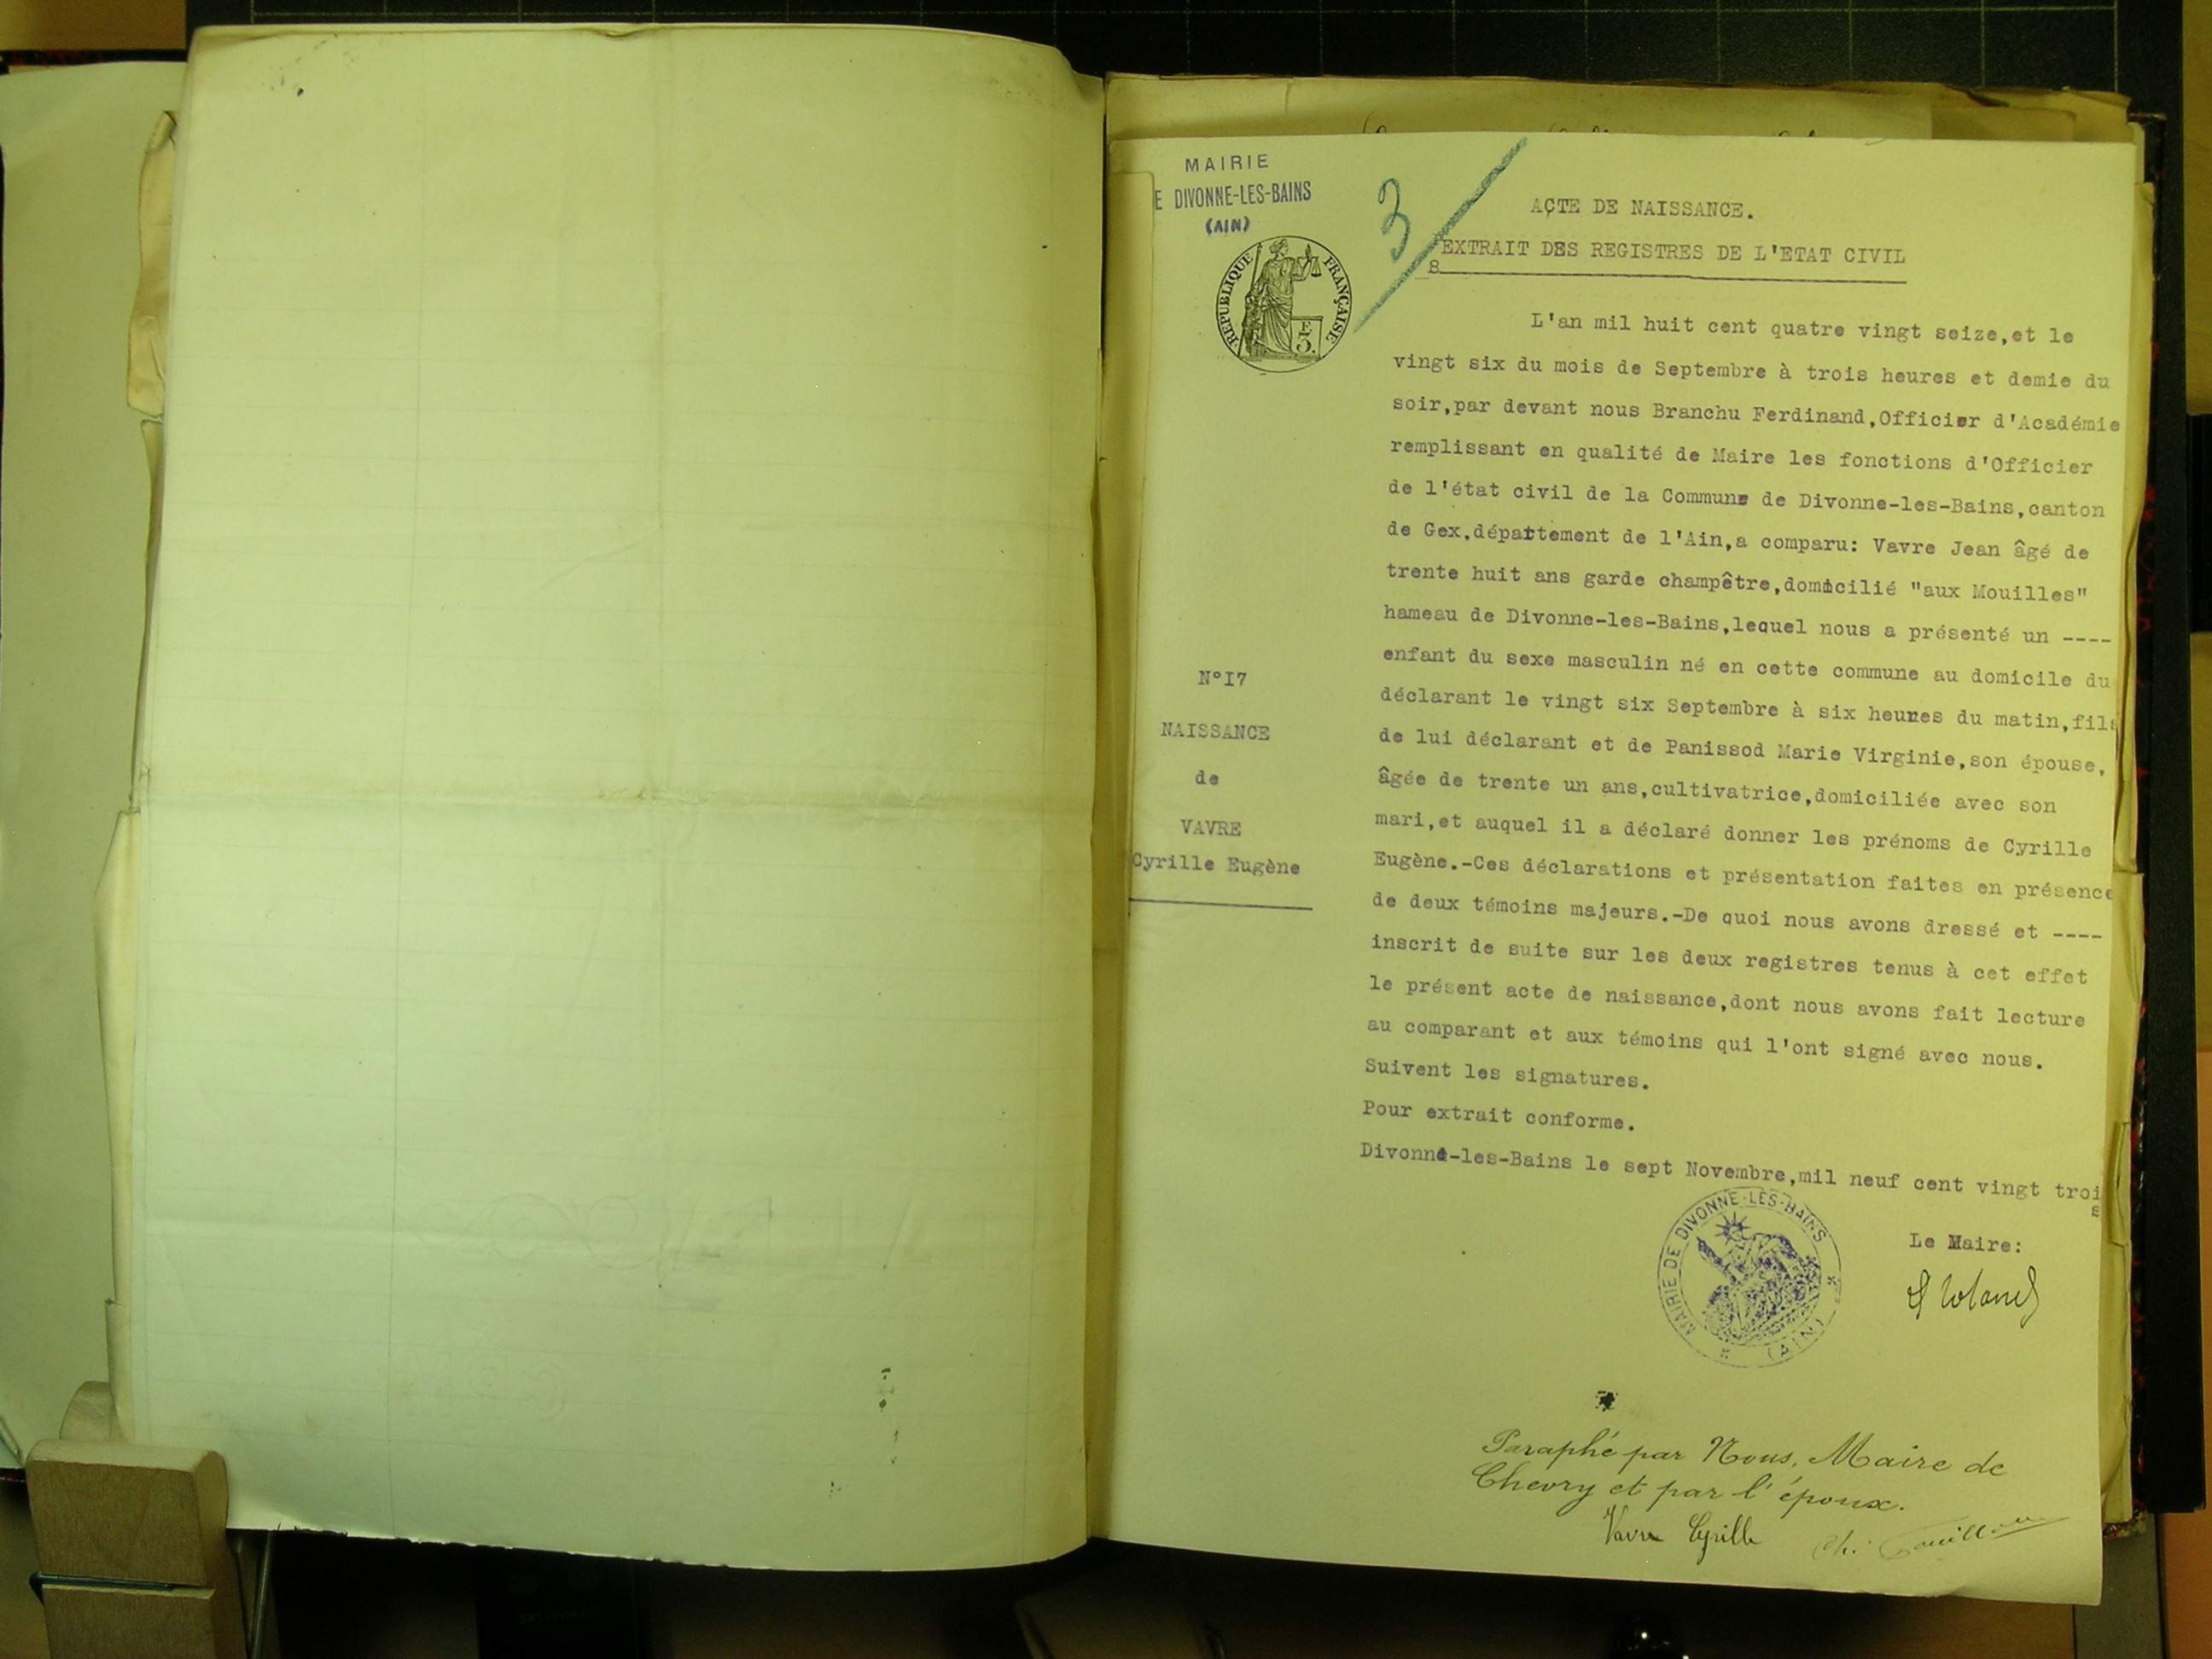 MAIRIE
E DIVONNE-LES-BAINS
(AIN)
REPUBLIQUE FRANÇAISE
3
ACTE DE NAISSANCE.
EXTRAIT DES REGISTRES DE L'ETAT CIVIL
8
L'an mil huit cent quatre vingt seize,et le
vingt six du mois de Septembre à trois heures et demie du
soir,par devant nous Branchu Ferdinand,Officier d'Académie
remplissant en qualité de Maire les fonctions d'Officier
de l'état civil de la Commune de Divonne-les-Bains,canton
de Gex,département de l'Ain,a comparu: Vavre Jean âgé de
trente huit ans garde champêtre,domicilié "aux Mouilles"
hameau de Divonne-les-Bains,lequel nous a présenté un ----
enfant du sexe masculin né en cette commune au domicile du
déclarant le vingt six Septembre à six heures du matin,fils
de lui déclarant et de Panissod Marie Virginie,son épouse,
âgée de trente un ans,cultivatrice,domiciliée avec son
mari,et auquel il a déclaré donner les prénoms de Cyrille
Eugène.-Ces déclarations et présentation faites en présence
de deux témoins majeurs.-De quoi nous avons dressé et ----
inscrit de suite sur les deux registres tenus à cet effet
le présent acte de naissance,dont nous avons fait lecture
au comparant et aux témoins qui l'ont signé avec nous.
Suivent les signatures.
Pour extrait conforme.
Divonne-les-Bains le sept Novembre,mil neuf cent vingt troi
s
N°I7
NAISSANCE
de
VAVRE
Cyrille Eugène
Le Maire:
MAIRIE DE DIVONNE-LES-BAINS
(AIN)
Paraphé par Nous, Maire de
Chevry et par l'époux.
Vavre Cyrille